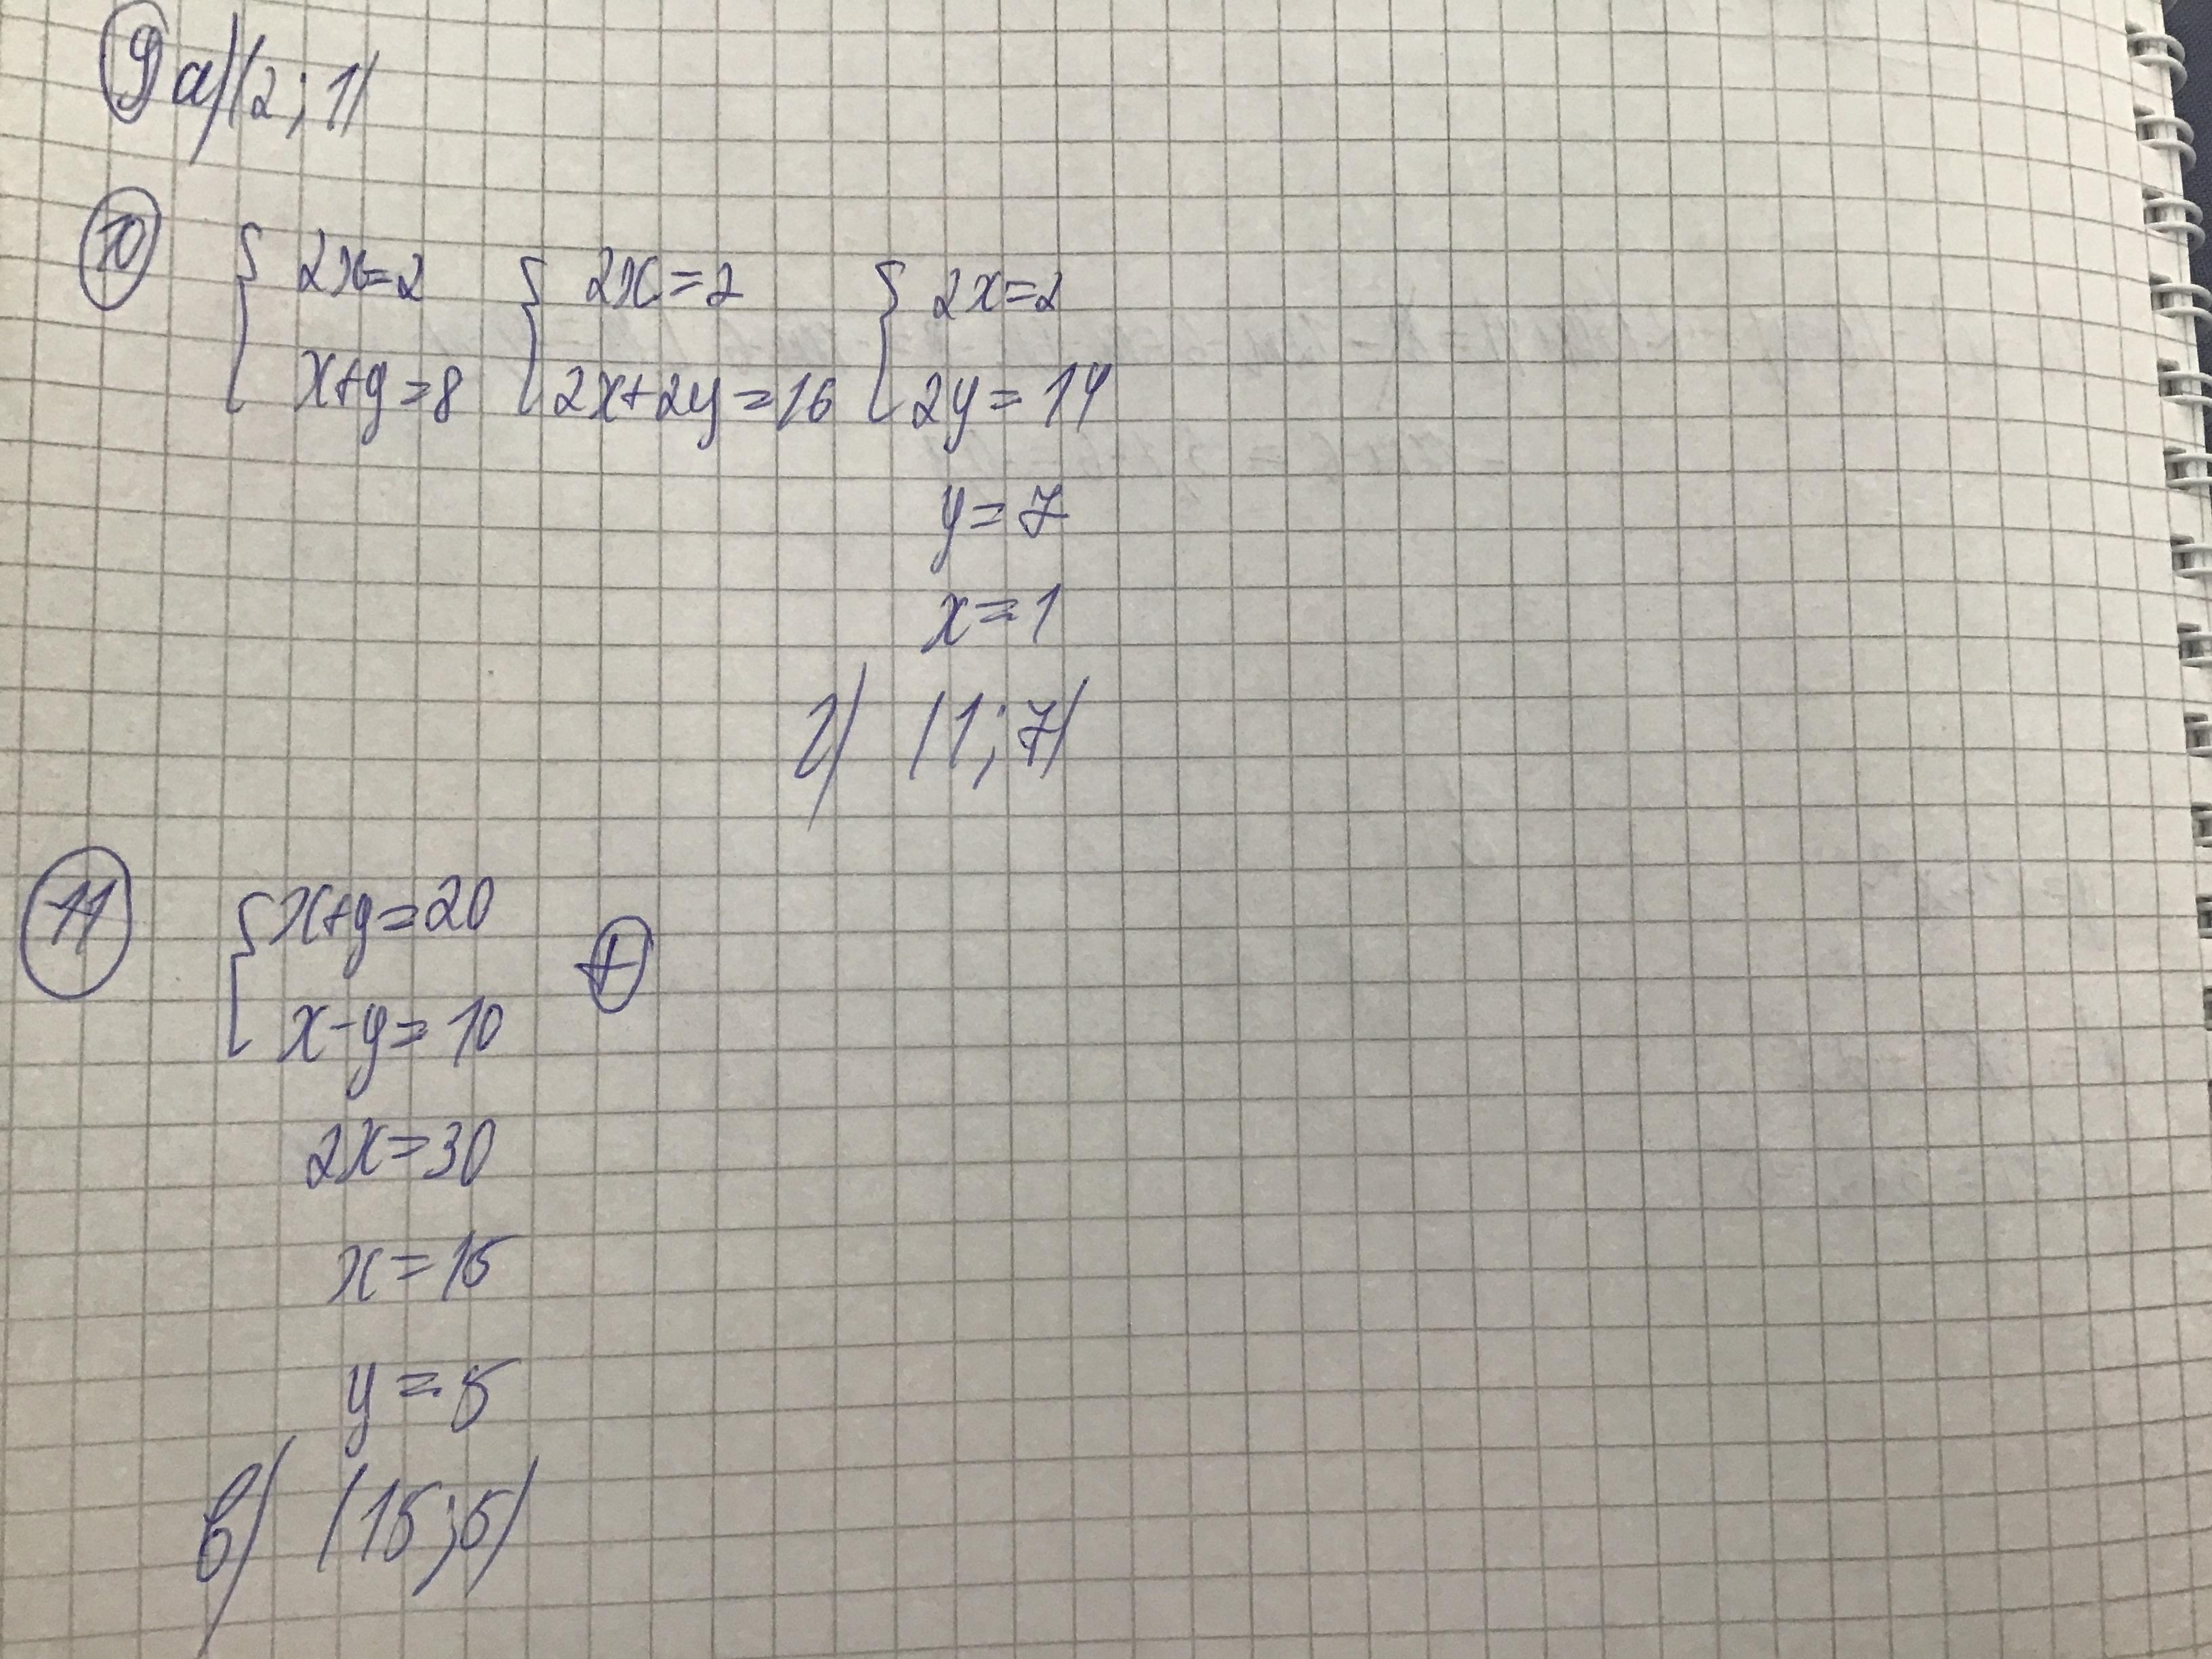 9 а) (2; 1)
10 { 2x=2 { 2x=2 { 2x=2
x+y=8 2x+2y=16 2y=14
y=7
x=1
г) (1; 7)
11 { x+y=20
+
x-y=10
2x=30
x=15
y=5
в) (15; 5)